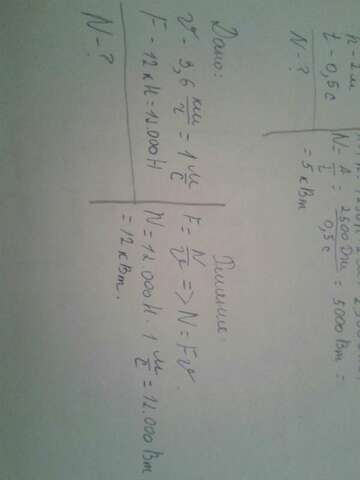 h - 2 м
t - 0,5 с
N - ?
N = A/t = 2500 Дж / 0,5 с = 5000 Вт =
= 5 кВт
Дано:
v - 3,6 км/ч = 1 м/с
F - 12 кН = 12.000 Н
N - ?
Решение:
F = N/v => N = Fv.
N = 12.000 Н · 1 м/с = 12.000 Вт
= 12 кВт.